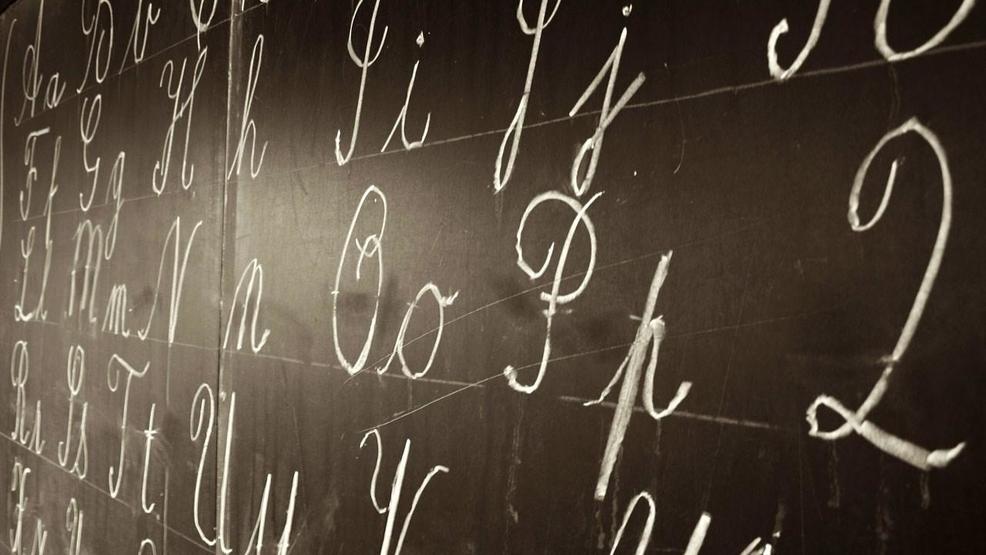 Aa B b
Ff Gg Hh Ii Jj
Ll Mm Nn Oo Pp Q
Rr Ss Tt Uu V